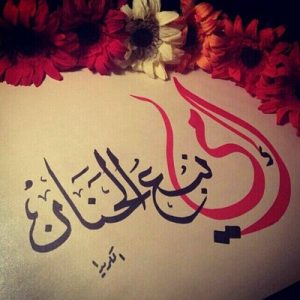 أمي
نبع الحَنَان